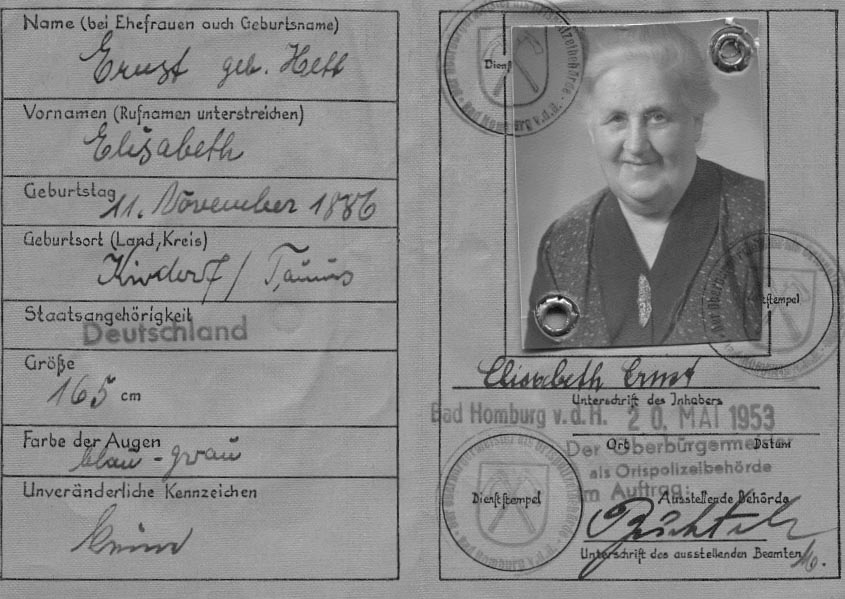 Name (bei Ehefrauen auch Geburtsname)
Ernst geb. Hett
Vornamen (Rufnamen unterstreichen)
Elisabeth
Geburtstag
11. November 1886
Geburtsort (Land, Kreis)
Kirdorf / Taunus
Staatsangehörigkeit
Deutschland
Größe
165 cm
Farbe der Augen
blau - grau
Unveränderliche Kennzeichen
keine
Dienst
stempel
Elisabeth Ernst
Unterschrift des Inhabers
Bad Homburg v.d.H. 20. MAI 1953
Ort Datum
Der Oberbürgermeister
als Ortspolizeibehörde
Im Auftrag:
Dienststempel
Ausstellende Behörde
Unterschrift des ausstellenden Beamten